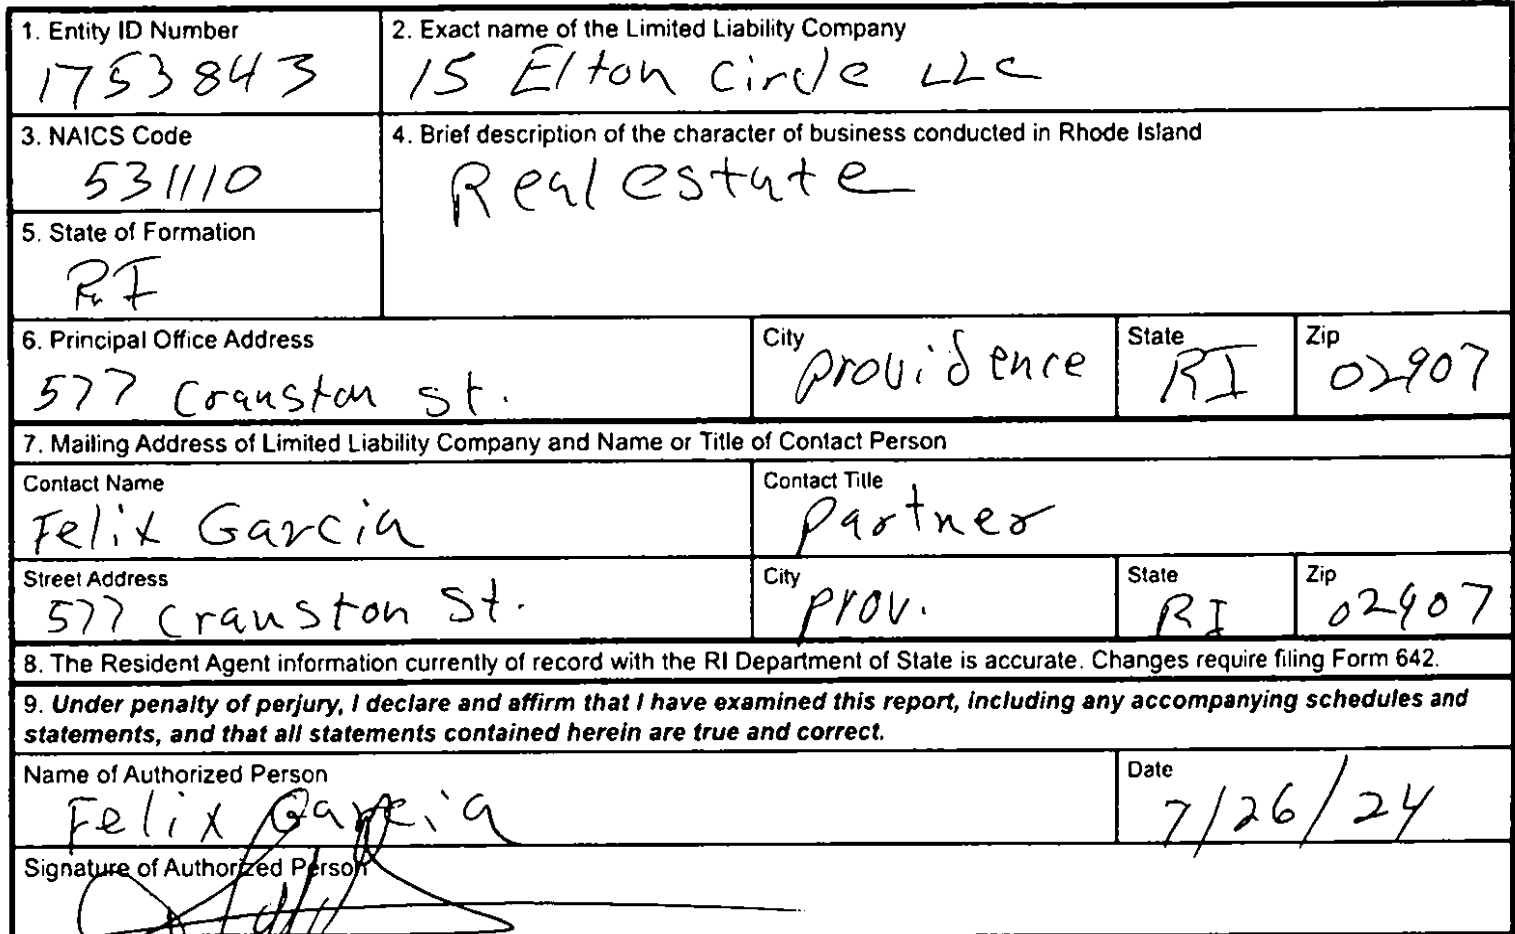 1. Entity ID Number
1753843
2. Exact name of the Limited Liability Company
15 Elton Circle LLC
3. NAICS Code
531110
4. Brief description of the character of business conducted in Rhode Island
Real estate
5. State of Formation
RI
6. Principal Office Address
577 Cranston St.
City
Providence
State
RI
Zip
02907
7. Mailing Address of Limited Liability Company and Name or Title of Contact Person
Contact Name
Felix Garcia
Contact Title
Partner
Street Address
577 Cranston St.
City
Prov.
State
RI
Zip
02907
8. The Resident Agent information currently of record with the RI Department of State is accurate. Changes require filing Form 642.
9. Under penalty of perjury, I declare and affirm that I have examined this report, including any accompanying schedules and
statements, and that all statements contained herein are true and correct.
Name of Authorized Person
Felix Garcia
Date
7/26/24
Signature of Authorized Person